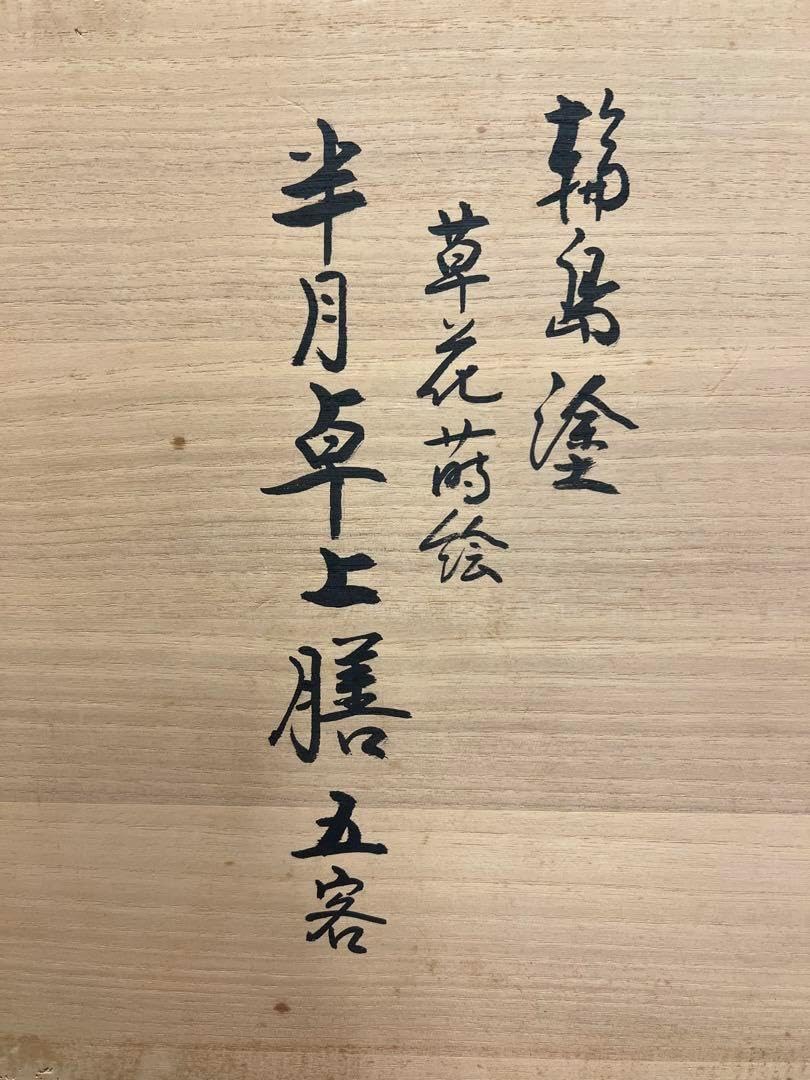 輪島塗
草花蒔絵
半月卓上膳五客